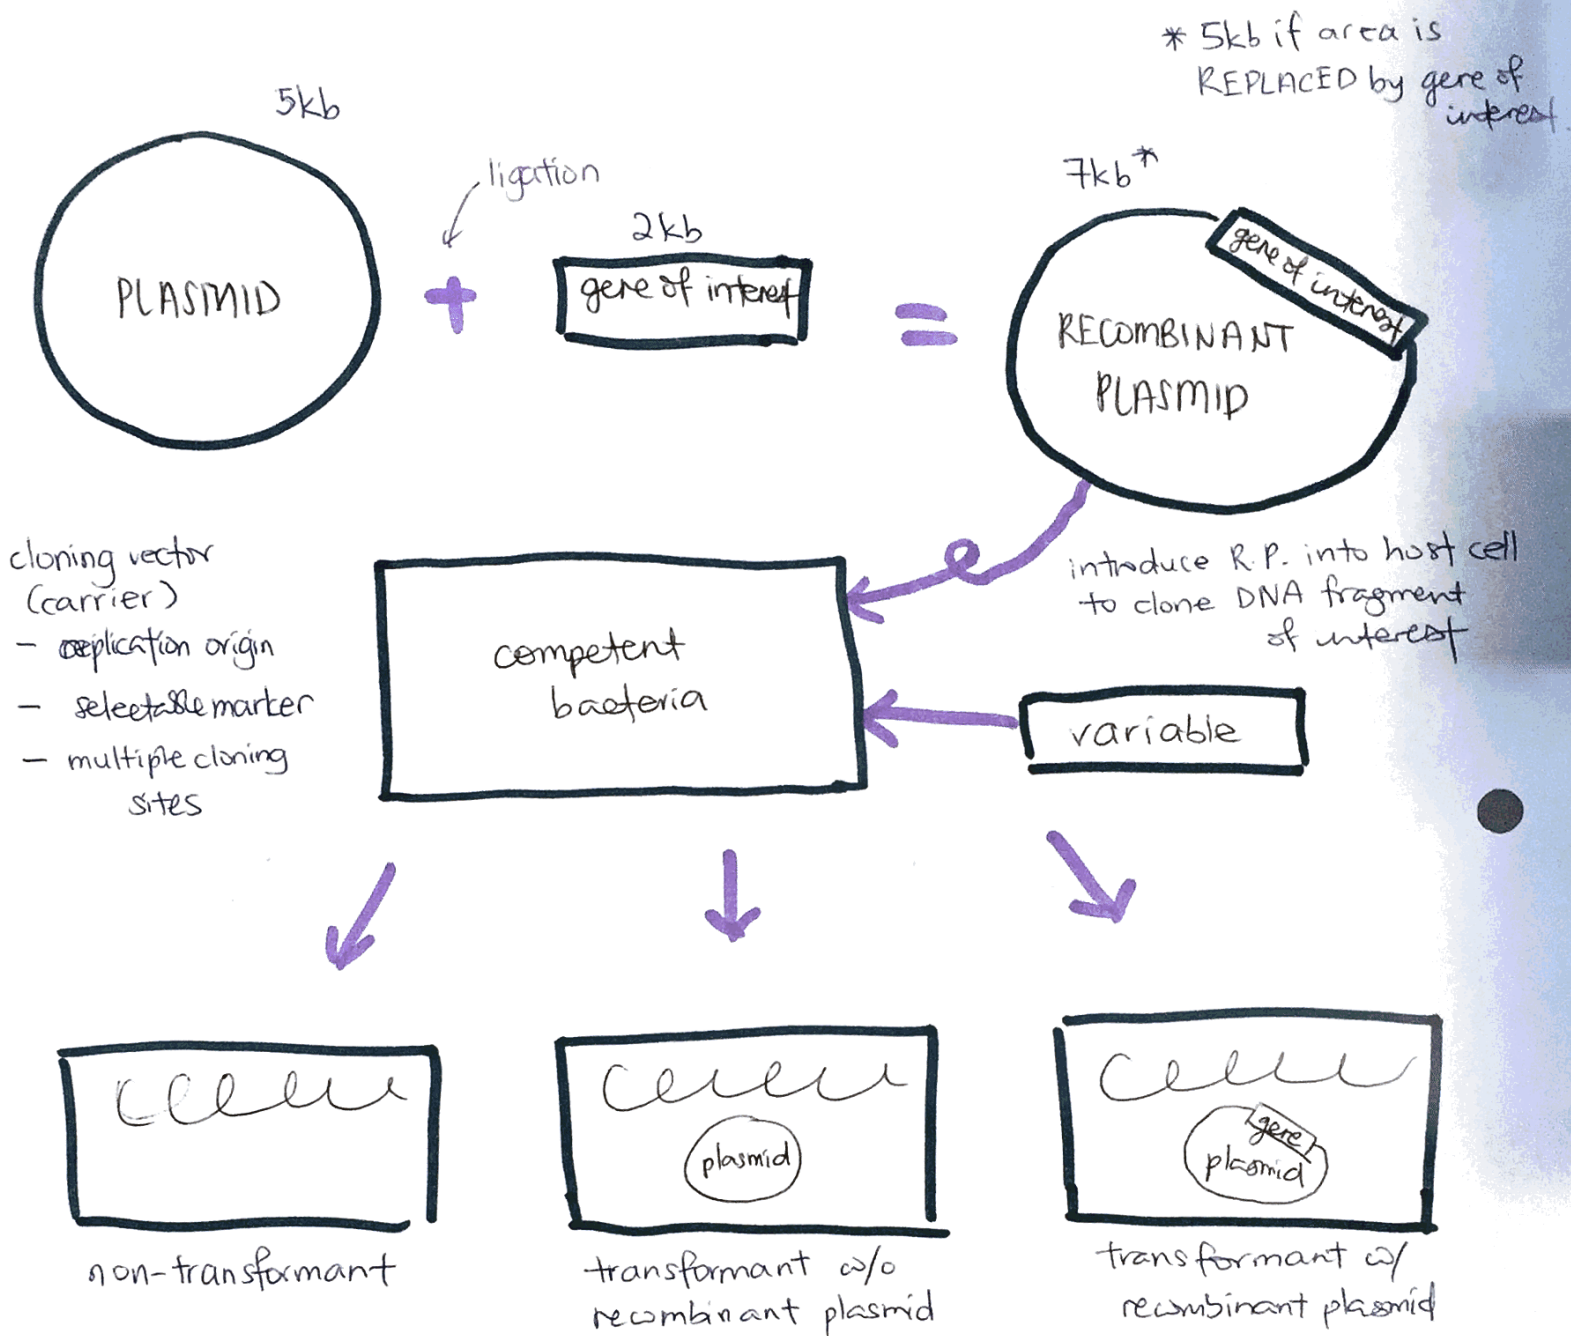 * 5kb if area is
REPLACED by gene of
interest.
5kb
ligation
2kb
7kb*
PLASMID
+
gene of interest
=
gene of interest
RECOMBINANT
PLASMID
cloning vector
(carrier)
- replication origin
- selectable marker
- multiple cloning
sites
competent
bacteria
introduce R.P. into host cell
to clone DNA fragment
of interest
variable
plasmid
gene
plasmid
non-transformant
transformant w/o
recombinant plasmid
transformant w/
recombinant plasmid